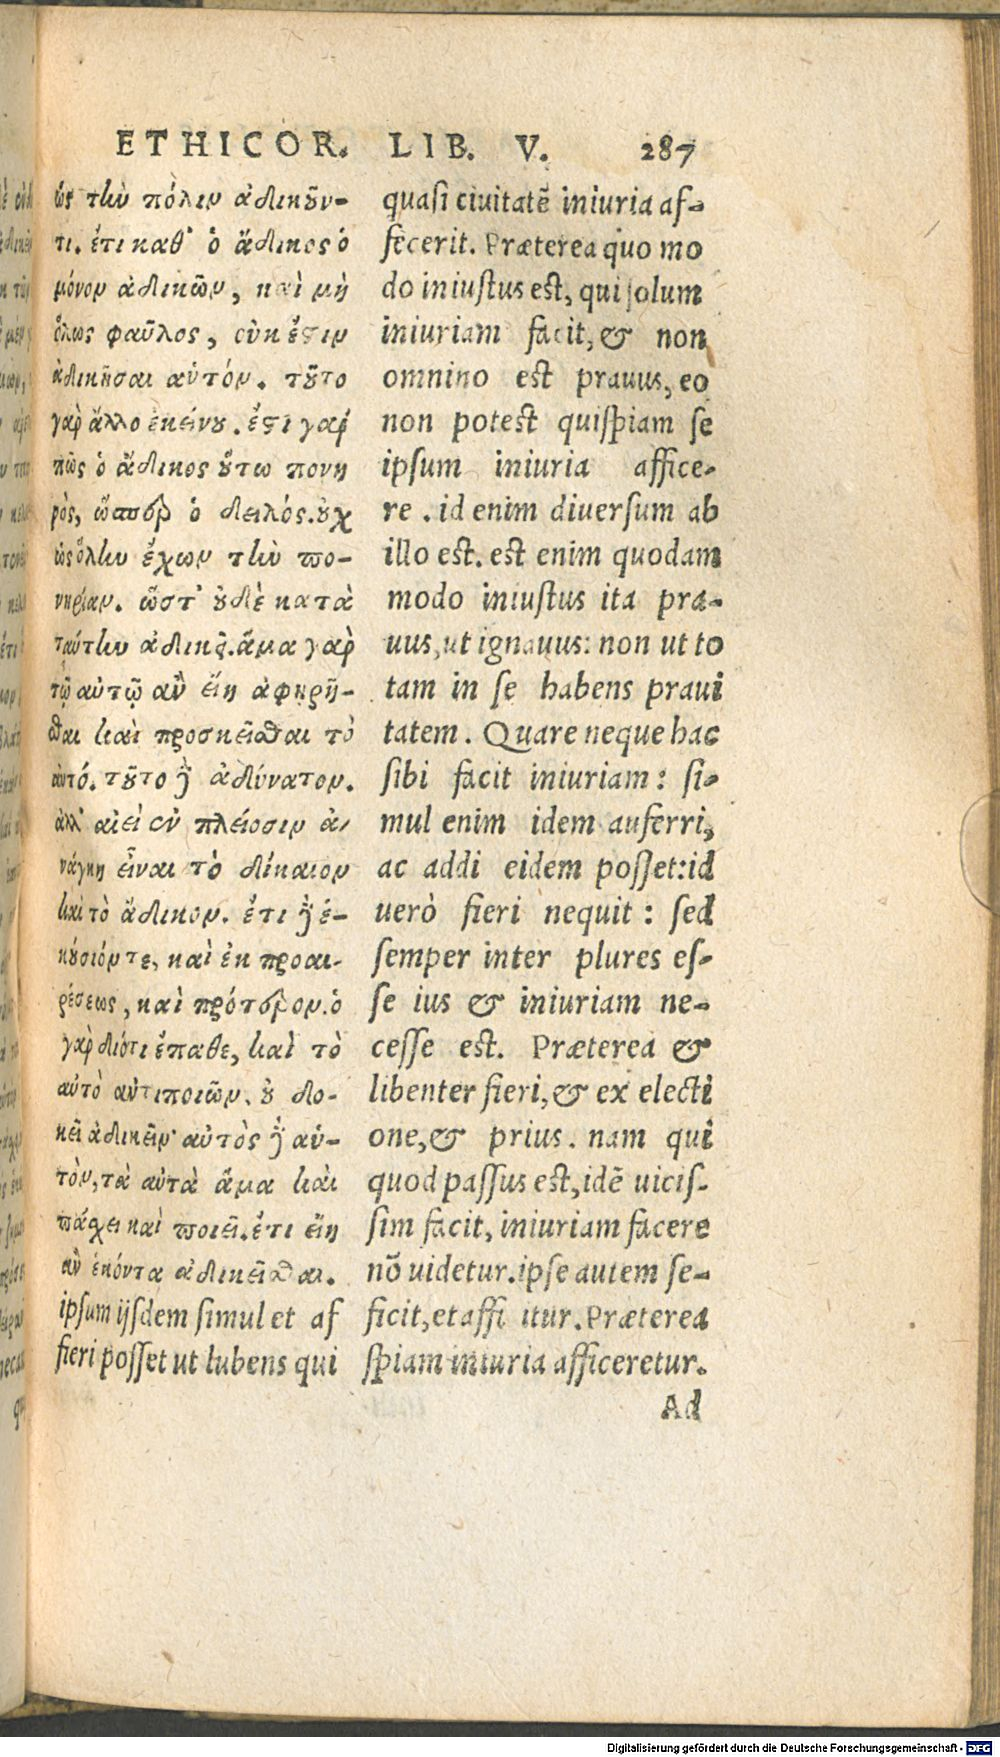 ETHICOR. LIB. V. 287
ὡς τὴν πόλιν ἀδικοῦν-
τι. ἔτι καθ' ὃ ἄδικος ὁ
μόνον ἀδικῶν, καὶ μὴ
ὅλως φαῦλος, οὐκ ἔστιν
ἀδικῆσαι αὑτόν. τοῦτο
γὰρ ἄλλο ἐκείνου. ἔστι γάρ
πως ὁ ἄδικος οὕτω πονη
ρὸς, ὥσπερ ὁ δειλός. οὐχ
ὡς ὅλην ἔχων τὴν πο-
νηρίαν. ὥστ' οὐδὲ κατὰ
ταύτην ἀδικεῖ. ἅμα γὰρ
τῷ αὐτῷ ἂν εἴη ἀφῃρῆ-
σθαι καὶ προσκεῖσθαι τὸ
αὐτό. τοῦτο δὲ ἀδύνατον.
ἀλλ' αἰεὶ ἐν πλείοσιν ἀ-
νάγκη εἶναι τὸ δίκαιον
καὶ τὸ ἄδικον. ἔτι δὲ ἑ-
κούσιόν τε, καὶ ἐκ προαι-
ρέσεως, καὶ πρότερον. ὁ
γὰρ διότι ἔπαθε, καὶ τὸ
αὐτὸ ἀντιποιῶν, οὐ δο-
κεῖ ἀδικεῖν· αὐτὸς δὲ αὑ-
τὸν, τὰ αὐτὰ ἅμα καὶ
πάσχει καὶ ποιεῖ. ἔτι εἴη
ἂν ἑκόντα ἀδικεῖσθαι.
quasi ciuitatẽ iniuria af-
fecerit. Præterea quo mo
do iniustus est, qui solum
iniuriam facit, & non
omnino est prauus, eo
non potest quispiam se
ipsum iniuria affice-
re . id enim diuersum ab
illo est. est enim quodam
modo iniustus ita pra-
uus, ut ignauus: non ut to
tam in se habens praui
tatem. Quare neque hac
sibi facit iniuriam: si-
mul enim idem auferri,
ac addi eidem posset: id
uerò fieri nequit: sed
semper inter plures es-
se ius & iniuriam ne-
cesse est. Præterea &
libenter fieri, & ex electi
one, & prius. nam qui
quod passus est, idẽ uicis-
sim facit, iniuriam facere
nõ uidetur. ipse autem se-
ipsum ijsdem simul et af ficit, et affi itur. Præterea
fieri posset ut lubens qui spiam iniuria afficeretur.
Ad
Digitalisierung gefördert durch die Deutsche Forschungsgemeinschaft - DFG